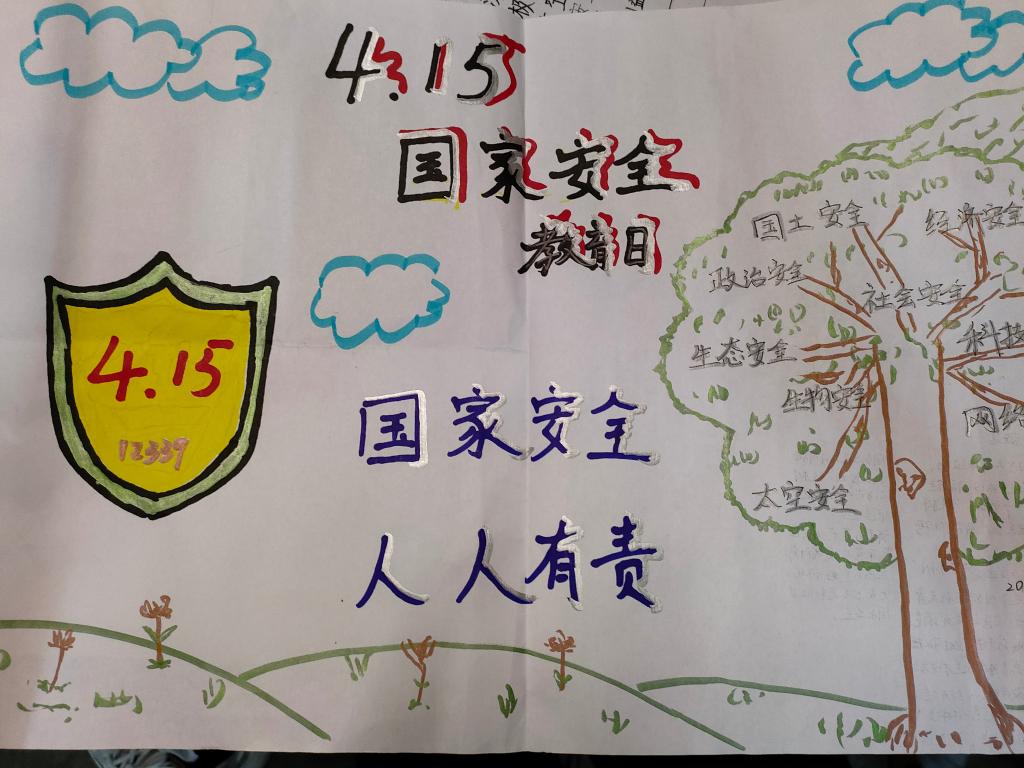 4.15
国家安全
教育日
4.15
12339
国家安全
人人有责
国土安全
经济安全
政治安全
社会安全
生态安全
科技
生物安全
网络
太空安全
20